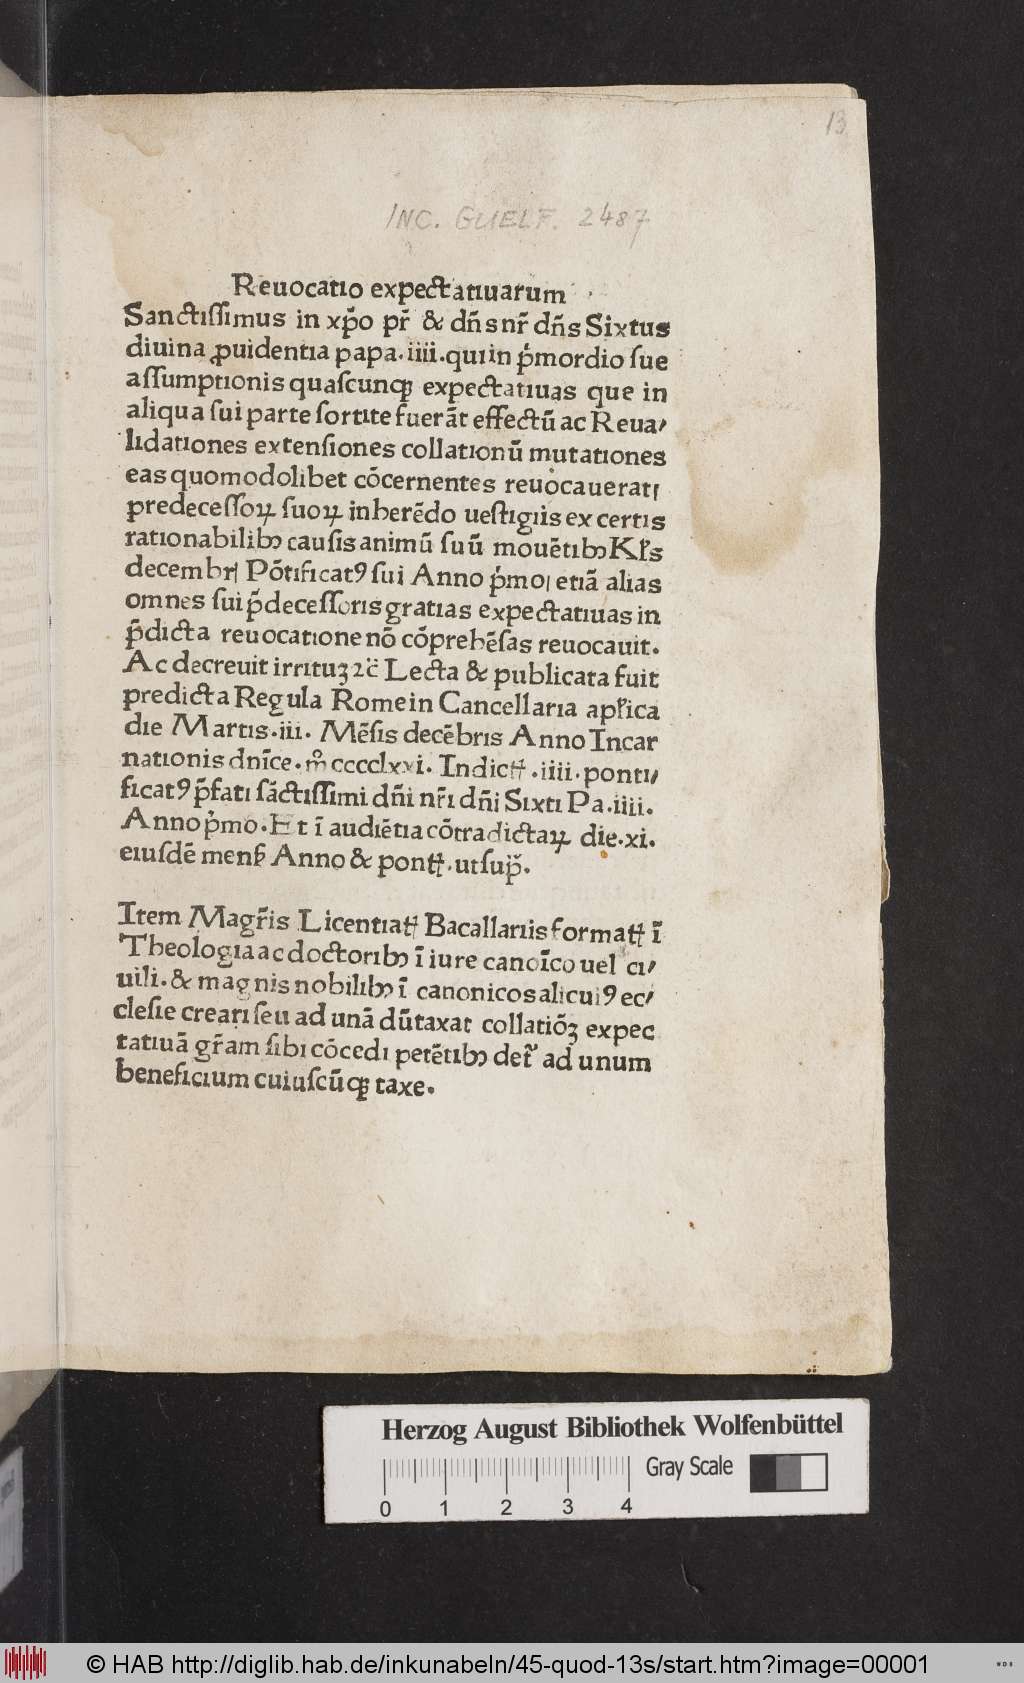 13
INC. GUELF. 2487
Reuocatio expectatiuarum
Sanctiſſimus in xp̃o pr̃ & dñs nr̃ dñs Sixtus
diuina ꝓuidentia papa. iiii. qui in p̃mordio ſue
aſſumptionis quaſcunqꝫ expectatiuas que in
aliqua ſui parte ſortite fuerãt effectũ ac Reua/
lidationes extenſiones collationũ mutationes
eas quomodolibet cõcernentes reuocauerat
predeceſſoꝝ ſuoꝝ inherẽdo ueſtigiis ex certis
rationabilibꝰ cauſis animũ ſuũ mouẽtibꝰ Kl̃s
decembr Põtificatꝰ ſui Anno p̃mo etiã alias
omnes ſui p̃deceſſoris gratias expectatiuas in
p̃dicta reuocatione nõ cõprehẽſas reuocauit.
Ac decreuit irrituꝫ ⁊c̃ Lecta & publicata fuit
predicta Regula Rome in Cancellaria apl̃ica
die Martis. iii. Mẽſis decẽbris Anno Incar
nationis dnĩce. m̊ cccclxxi. Indictꝭ. iiii. ponti/
ficatꝰ p̃fati ſãctiſſimi dñi nr̃i dñi Sixti Pa. iiii.
Anno p̃mo. Et ĩ audiẽtia cõtradictaꝝ die. xi.
eiuſdẽ menſ̃ Anno & pontꝭ. ut ſup̃.
Item Magr̃is Licentiatꝭ Bacallariis formatꝭ ĩ
Theologia ac doctoribꝰ ĩ iure canoĩco uel ci/
uili. & magnis nobilibꝰ ĩ canonicos alicuiꝰ ec/
cleſie creari ſeu ad unã dũtaxat collatiõꝫ expec
tatiuã gr̃am ſibi cõcedi petẽtibꝰ det̃ ad unum
beneficium cuiuſcũqꝫ taxe.
Herzog August Bibliothek Wolfenbüttel
Gray Scale
0 1 2 3 4
© HAB http://diglib.hab.de/inkunabeln/45-quod-13s/start.htm?image=00001